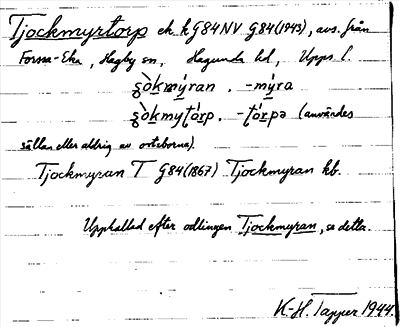 Tjockmyrtorp ek. k G84NV G84(1943), avs. från
Forssa-Eka, Hagby sn, Hagunda hd, Upps. l.
ʂòkmýran. -mýra
ʂòkmytórp. -tórpə (användes
sällan eller aldrig av ortsborna).
Tjockmyran T G84(1867) Tjockmyran kb.
Uppkallad efter odlingen Tjockmyran, se detta.
K-H. Tapper 1944.